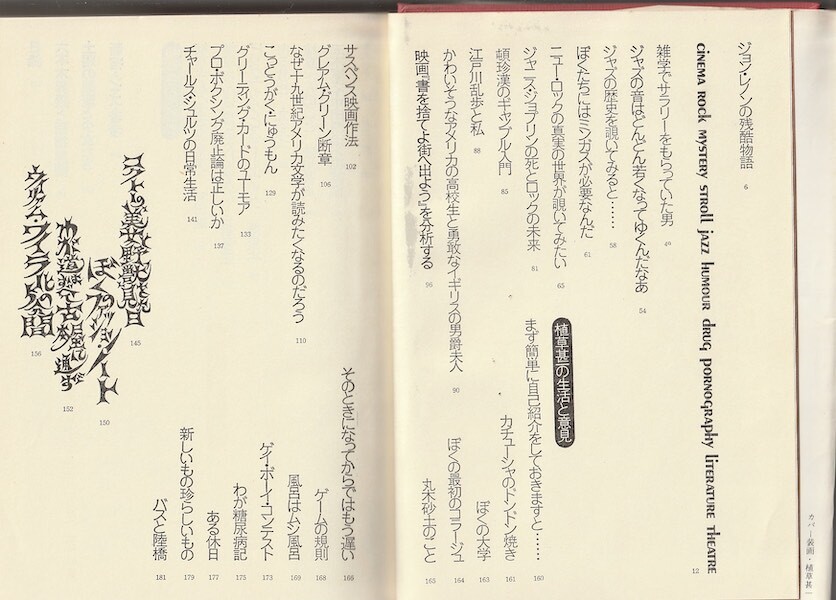 ジョン・レノンの残酷物語 6
CINEMA ROCK MYSTERY STROLL JAZZ HUMOUR DRUG PORNOGRAPHY LITERATURE THEATRE 12
雑学でサラリーをもらっていた男 49
ジャズの音はどんどん若くなってゆくんだなあ 54
ジャズの歴史を覗いてみると…… 58
ぼくたちにはミンガスが必要なんだ 61
ニュー・ロックの真実の世界が覗いてみたい 65
ジャニス・ジョプリンの死とロックの未来 81
頓珍漢のギャンブル入門 85
江戸川乱歩と私 88
かわいそうなアメリカの高校生と勇敢なイギリスの男爵夫人 90
映画『書を捨てよ街へ出よう』を分析する 96
植草甚一の生活と意見
まず簡単に自己紹介をしておきますと…… 160
カチューシャのドンドン焼き 161
ぼくの大学 163
ぼくの最初のコラージュ 164
丸木砂土のこと 165
サスペンス映画作法 102
グレアム・グリーン断章 106
なぜ十九世紀アメリカ文学が読みたくなるのだろう 110
こっとうがく・にゅうもん 129
グリーティング・カードのユーモア 133
プロ・ボクシング廃止論は正しいか 137
チャールス・シュルツの日常生活 141
そのときになってからではもう遅い 166
ゲームの規則 168
風呂はムシ風呂 169
ゲイ・ボーイ・コンテスト 173
わが糖尿病記 175
ある休日 177
新しいもの珍らしいもの 179
バスと陸橋 181
145
ぼくのファッション・ノート 150
わが道はすべて古本屋に通ず 152
ウィリアム・ワイラーの 156
カバー装画・植草甚一